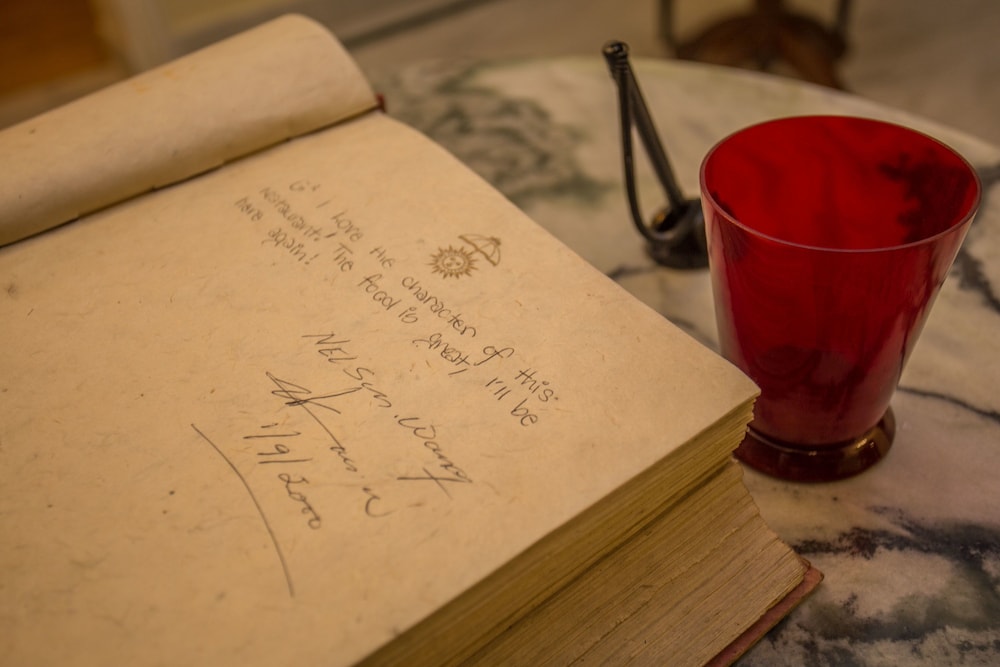 G' I love the character of this
restaurant. The food is great, I'll be
here again!
NELSON. Wang
1/9/2000